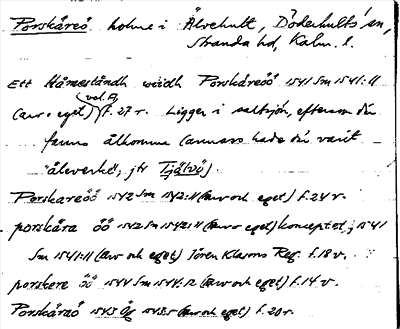 Porskäreö holme i Älvehult, Döderhults sn,
Stranda hd, Kalm. l.
Ett Håmeståndh widh Porskäreöö 1541 Sm 1541:11
(arv o. eget) vol. A, f. 27 r. Ligger i saltsjön, eftersom där
fanns ålkomma (annars hade där varit
"ålaverke", jfr Tjälvö).
Porskareöö 1542 Sm 1542:11 (arv och eget) f. 24 v.
porskåra öö 1542 Sm 1542:11 (arv o eget) konceptet, 1541
Sm 1541:11 (arv och eget) Jören Klasons Reg. f. 18 v.
porskere öö 1544 Sm 1544:12 (arv och eget) f. 14 v.
Porskäraö 1545 Ög 1545:5 (arv och eget) f. 20 r.